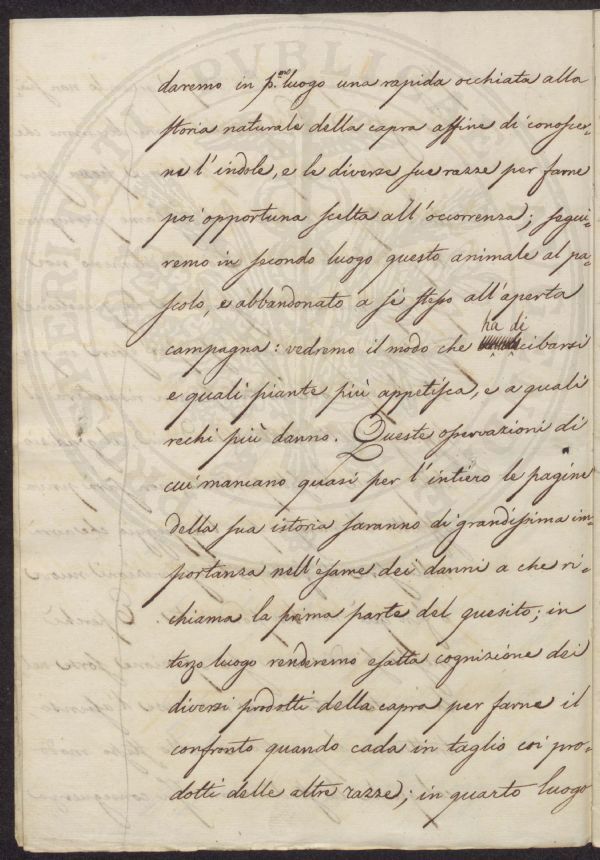 daremo in p.mo luogo una rapida occhiata alla
storia naturale della capra affine di conoscer-
ne l'indole, e le diverse sue razze per farne
poi opportuna scelta all'occorrenza; segui-
remo in secondo luogo questo animale al pa-
scolo, e abbandonato a sè stesso all'aperta
campagna: vedremo il modo che ha di cibarsi
e quali piante più appetisca, e a quali
rechi più danno. Queste osservazioni di
cui mancano quasi per l'intiero le pagine
della sua istoria saranno di grandissima im-
portanza nell'esame dei danni a che ri-
chiama la prima parte del quesito; in
terzo luogo renderemo esatta cognizione dei
diversi prodotti della capra per farne il
confronto quando cada in taglio coi pro-
dotti delle altre razze; in quarto luogo